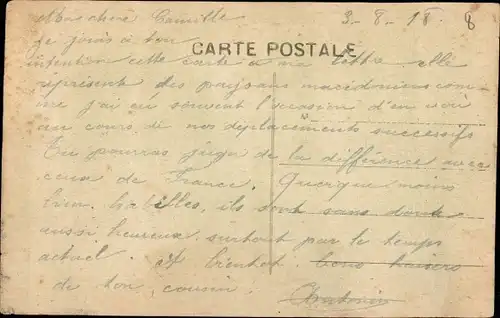 Mon cher Camille 3-8-18 8
Je joins à ton
CARTE POSTALE
intention cette carte à ma lettre. elle
représente des paysans macédoniens com-
me j'ai eu souvent l'occasion d'en voir
au cours de nos déplacements successifs
Tu pourras juger de la différence avec
ceux de France. Quoique moins
bien habillés, ils sont sans doute
aussi heureux surtout par le temps
actuel. A bientôt bons baisers
de ton cousin.